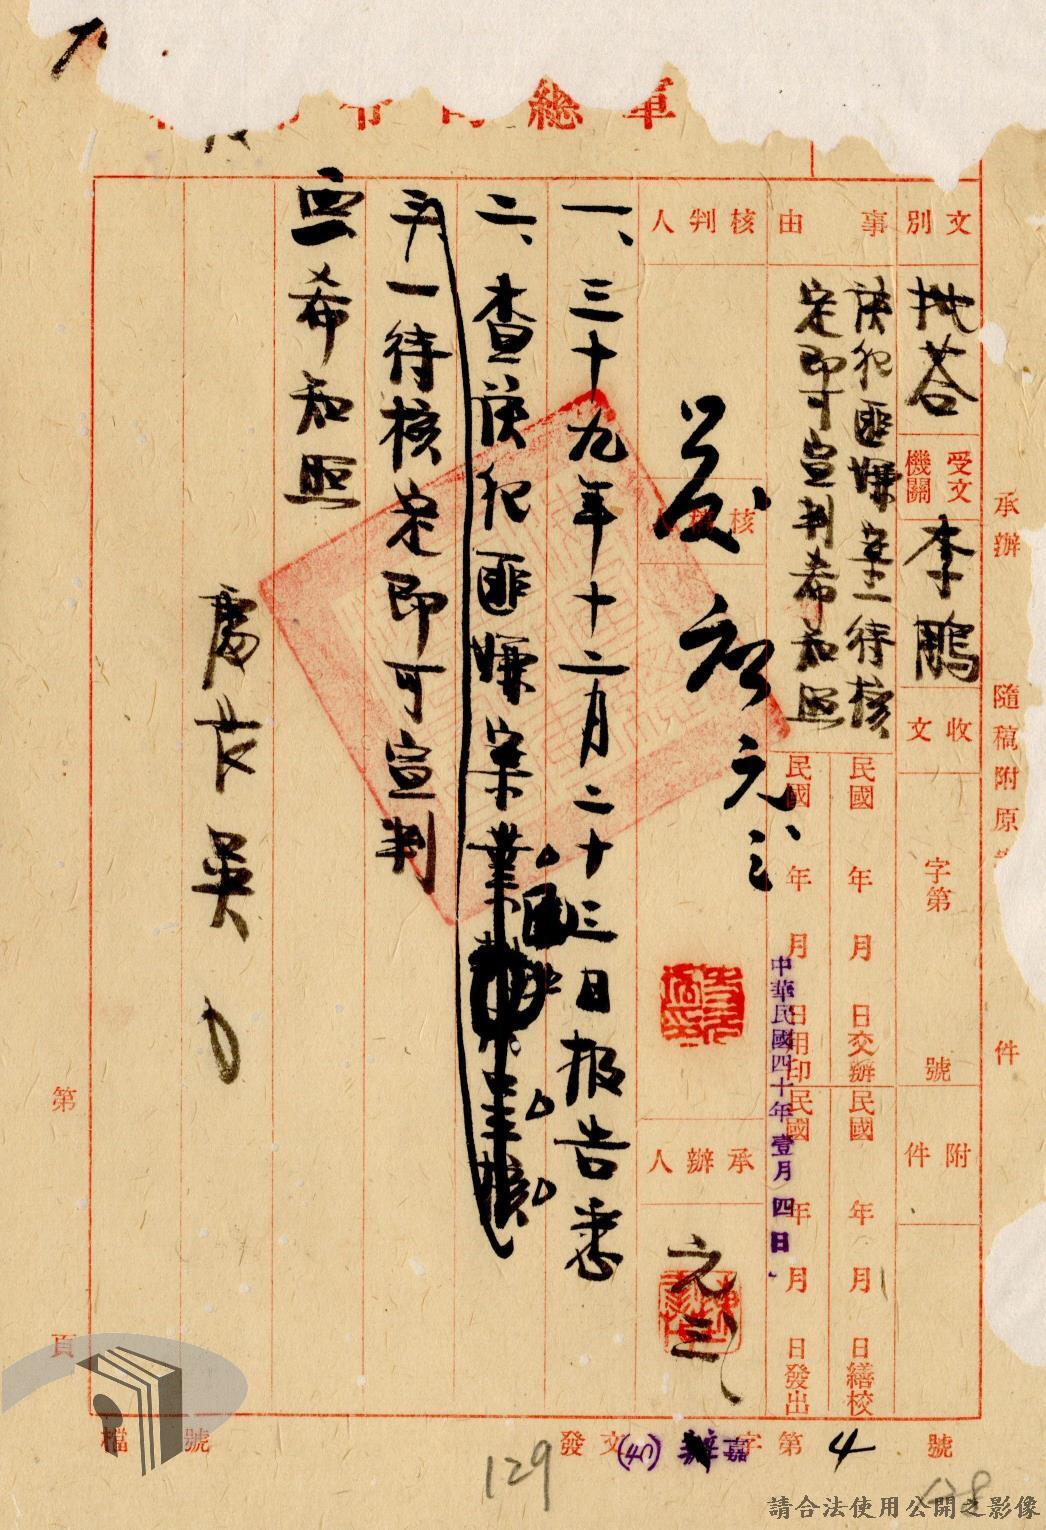 軍總司令
文別
批答
受文機關
李鵬
收文
字第
號
附件
事由
該犯匪嫌案一待核
定即可宣判希知照
民國 年 月 日交辦
民國 年 月 日繕校
民國 年 月 日用印
民國 年 月 日發出
中華民國四十年壹月四日
核判人
核稿人
元、三
承辦人
元三
一、三十九年十二月二十三日报告悉
二、查該犯匪嫌案
一待核定即可宣判
希知照
處長吳
承辦
隨稿附原
件
第
頁
檔 號
發文(40)嘉字第4號
129
128
請合法使用公開之影像